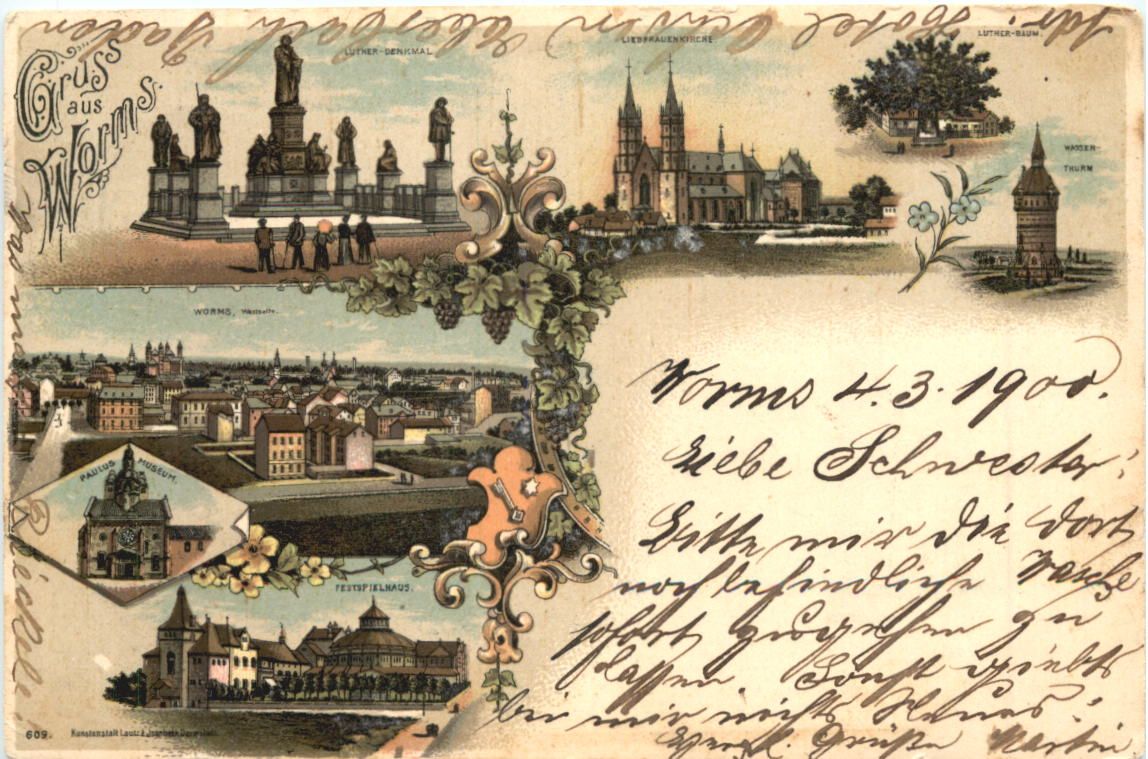 Gruss
aus
Worms.
LUTHER-DENKMAL
LIEBFRAUENKIRCHE
LUTHER-BAUM.
WASSER-
THURM
WORMS, Westseite.
PAULUS MUSEUM.
FESTSPIELHAUS.
609. Kunstanstalt Lautz & Darmstadt.
Worms 4.3.1900.
Liebe Schwester!
Bitte mir die dort
noch befindliche Wäsche
sofort zugehen zu
lassen. Sonst giebts
bei mir nichts Neues.
Herzl. Grüße Martin
Adr. Hotel
Eberbach Baden